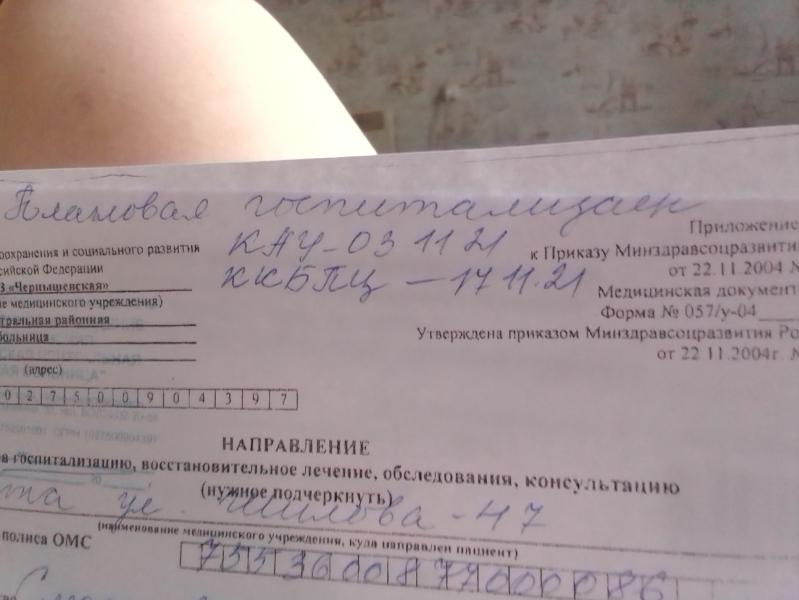 Плановая госпитализаци
КАУ-03 11 21
ККБПЦ - 17 11.21
Приложение
к Приказу Минздравсоцразвити
от 22.11.2004 №
Медицинская документ
Форма № 057/у-04
Утверждена приказом Минздравсоцразвития Ро
от 22 11.2004г. №
оохранения и социального развития
сийской Федерации
З «Чернышевская»
ие медицинского учреждения)
тральная районная
больница
(адрес)
0 2 7 5 0 0 9 0 4 3 9 7
НАПРАВЛЕНИЕ
в госпитализацию, восстановительное лечение, обследования, консультацию
(нужное подчеркнуть)
та ул. Шилова - 47
(наименование медицинского учреждения, куда направлен пациент)
полиса ОМС
7553600877000086